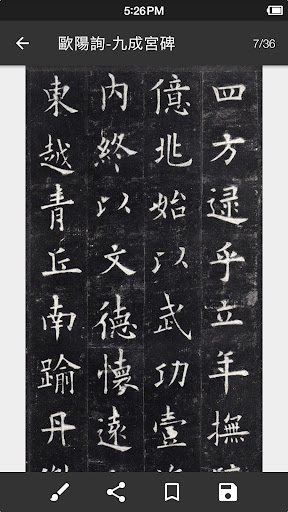 5:26PM
歐陽詢-九成宮碑
7/36
四方逮乎立年撫
億兆始以武功壹
内終以文德懷遠
東越青丘南踰丹